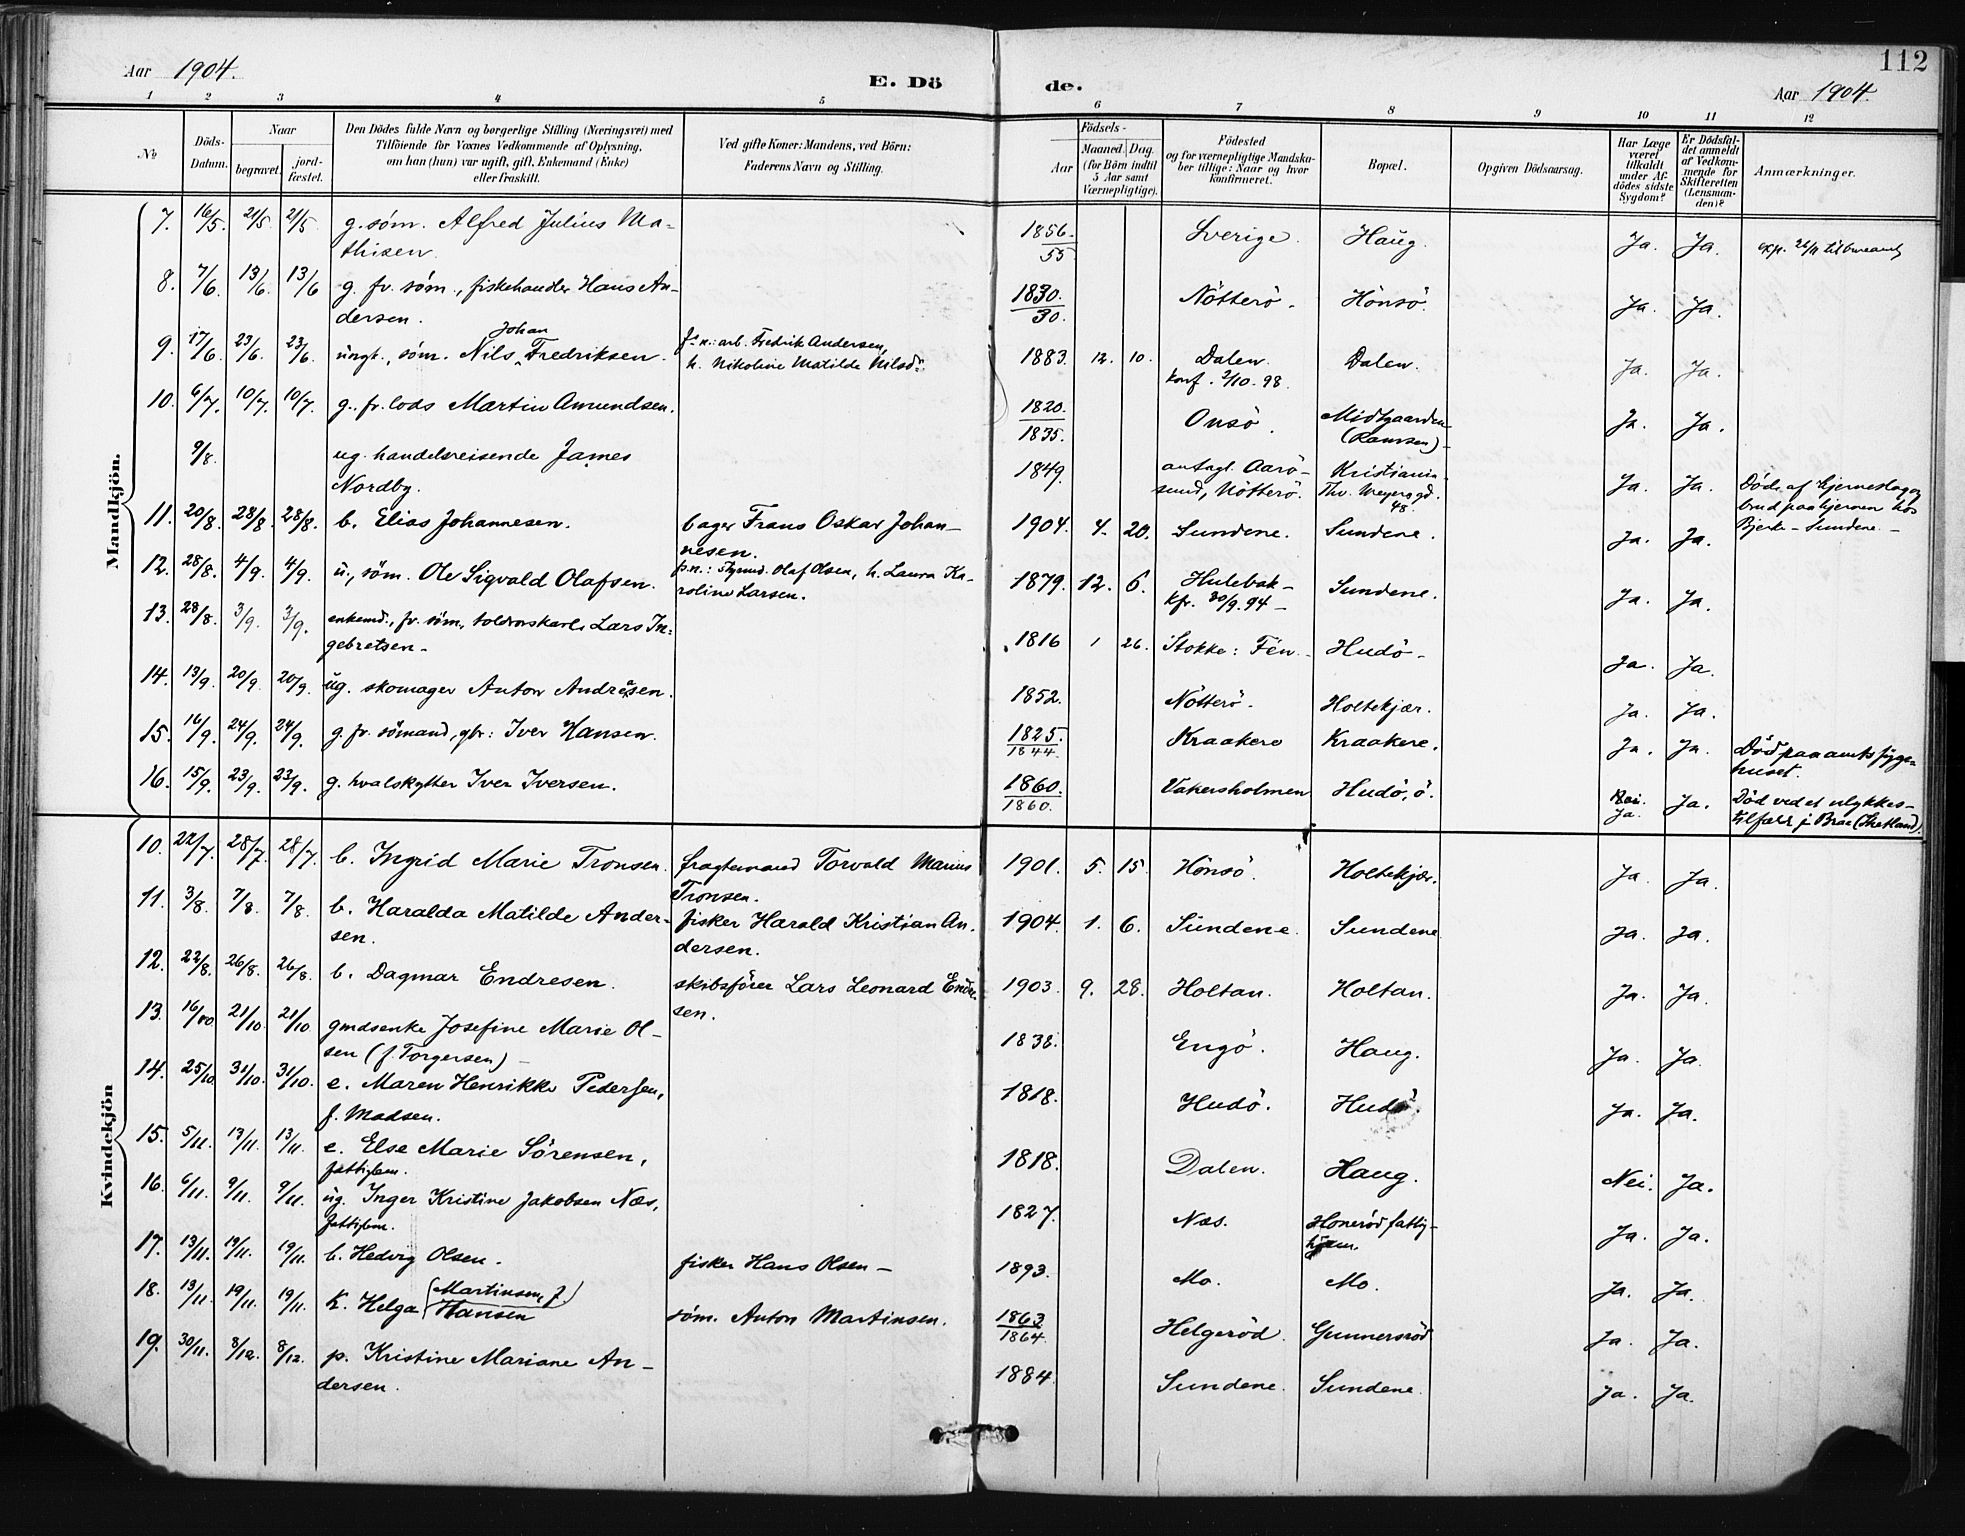 112
Aar 1904.
E. Dö de.
Aar 1904.
1 2 3 4 5 6 7 8 9 10 11 12
No
Döds-Datum.
Naar
begravet.
jord-fæstet.
Den Dödes fulde Navn og borgerlige Stilling (Næringsvei) med
Tilföiende for Voxnes Vedkommende af Oplysning,
om han (hun) var ugift, gift, Enkemand (Enke)
eller fraskilt.
Ved gifte Koner: Mandens, ved Börn:
Faderens Navn og Stilling.
Födsels-
Aar
Maaned. Dag.
(for Börn indtil
5 Aar samt
Værnepligtige).
Födested
og for værnepligtige Mandska-
ber tillige: Naar og hvor
konfirmeret.
Bopæl.
Opgiven Dödsaarsag.
Har Læge
været
tilkaldt
under Af-
dödes sidste
Sygdom?
Er Dödsfal-
det anmeldt
af Vedkom-
mende for
Skifteretten
(Lensman-
den)?
Anmærkninger.
Mandkjön.
7. 16/5. 21/5 21/5 g. søm. Alfred Julius Ma-
thisen. 1856. 55 Sverige. Haug. Ja. Ja.
8. 7/6. 13/6. 13/6 g. fv. søm., fiskehandler Hans An-
dersen. 1830. 30. Nötterö. Hönsö. Ja. Ja.
9. 17/6. 23/6. 23/6. ungk., søm. Nils Johan Fredriksen. f. n.: arb. Fredrik Andersen,
h. Nikoline Matilde Nilsd. 1883. 12. 10. Dalen. Dalen. Ja. Ja.
konf. 2/10. 98.
10. 6/7. 10/7. 10/7. g. fv. lods Martin Amundsen. 1820. 1835. Onsö. Midtgaarden
(Ramsen) Ja. Ja.
9/8. ug. handelsreisende James
Nordby. 1849. antagl. Aarö-
sund, Nötterö. Kristiania
Thv. Meyers gd. 48. Ja. Ja. Død af hjerneslag og
brud paa hjernen hos
Bjerke - Sundene.
11. 20/8. 28/8. 28/8. b. Elias Johannesen. bager Frans Oskar Johan-
nesen. 1904. 4. 20. Sundene. Sundene. Ja. Ja.
12. 28/8. 4/9. 4/9. u., søm. Ole Sigvald Olafsen. f. n.: styrmd. Olaf Olsen, h. Laura Ka-
roline Larsen. 1879. 12. 6. Hulebak-
kfr. 30/9. 94 Sundene. Ja. Ja.
13. 28/8. 3/9. 3/9. enkemd., fv. søm., toldroskarl Lars In-
gebretsen. 1816 1 26. Stokke: Fén. Hudö. Ja. Ja.
14. 13/9. 20/9. 20/9. ug. skomager Anton Andresen. 1852. Nötterö. Holtekjær. Ja. Ja.
15. 16/9. 24/9. 24/9. g. fv. sömand, gbr: Iver Hansen. 1825. 1844. Kraakere Kraakere. Ja. Ja. Död paa amtssyge-
huset.
16. 15/9. 23/9. 23/9. g. hvalskytter Iver Iversen. 1860. 1860. Vakersholmen Hudö, ö. Nei. Ja. Ja. Död ved et ulykkes-
tilfælde på Brae (Shetland).
Kvindekjön
10. 22/7. 28/7. 28/7. b. Ingrid Marie Tronsen. fragtemand Torvald Marius
Tronsen. 1901. 5. 15. Hönsö. Holtekjær. Ja. Ja.
11. 3/8. 7/8. 7/8. b. Haralda Matilde Ander-
sen. fisker Harald Kristian An-
dersen. 1904. 1. 6. Sundene. Sundene Ja. Ja.
12. 22/8. 26/8. 26/8. b. Dagmar Endresen. skibsförer Lars Leonard Endre-
sen. 1903. 9. 28. Holtan. Holtan. Ja. Ja.
13. 16/10 21/10. 21/10 gmdsenke Josefine Marie Ol-
sen (f. Torgersen) 1838. Engö. Haug. Ja. Ja.
14. 25/10. 31/10. 31/10. e. Maren Henrikke Pedersen,
f. Madsen. 1818. Hudö. Hudö. Ja. Ja.
15. 5/11. 13/11. 13/11. e. Else Marie Sörensen,
fattiglem. 1818. Dalen. Haug. Nei. Ja.
16. 6/11. 9/11. 9/11. ug. Inger Kristine Jakobsen Næs,
fattiglem. 1827. Næs. Honeröd fattig-
hjem. Ja. Ja.
17. 13/11. 19/11. 19/11. b. Hedvig Olsen. fisker Hans Olsen 1893. Mo. Mo. Ja. Ja.
18. 13/11. 19/11. 19/11. k. Helga (Martinsen, f.)
Hansen søm. Anton Martinsen. 1863 1864. Helgeröd. Gunnersröd Ja. Ja.
19. 30/11. 8/12. 8/12. p. Kristine Mariane An-
dersen. 1884. Sundene. Sundene. Ja. Ja.